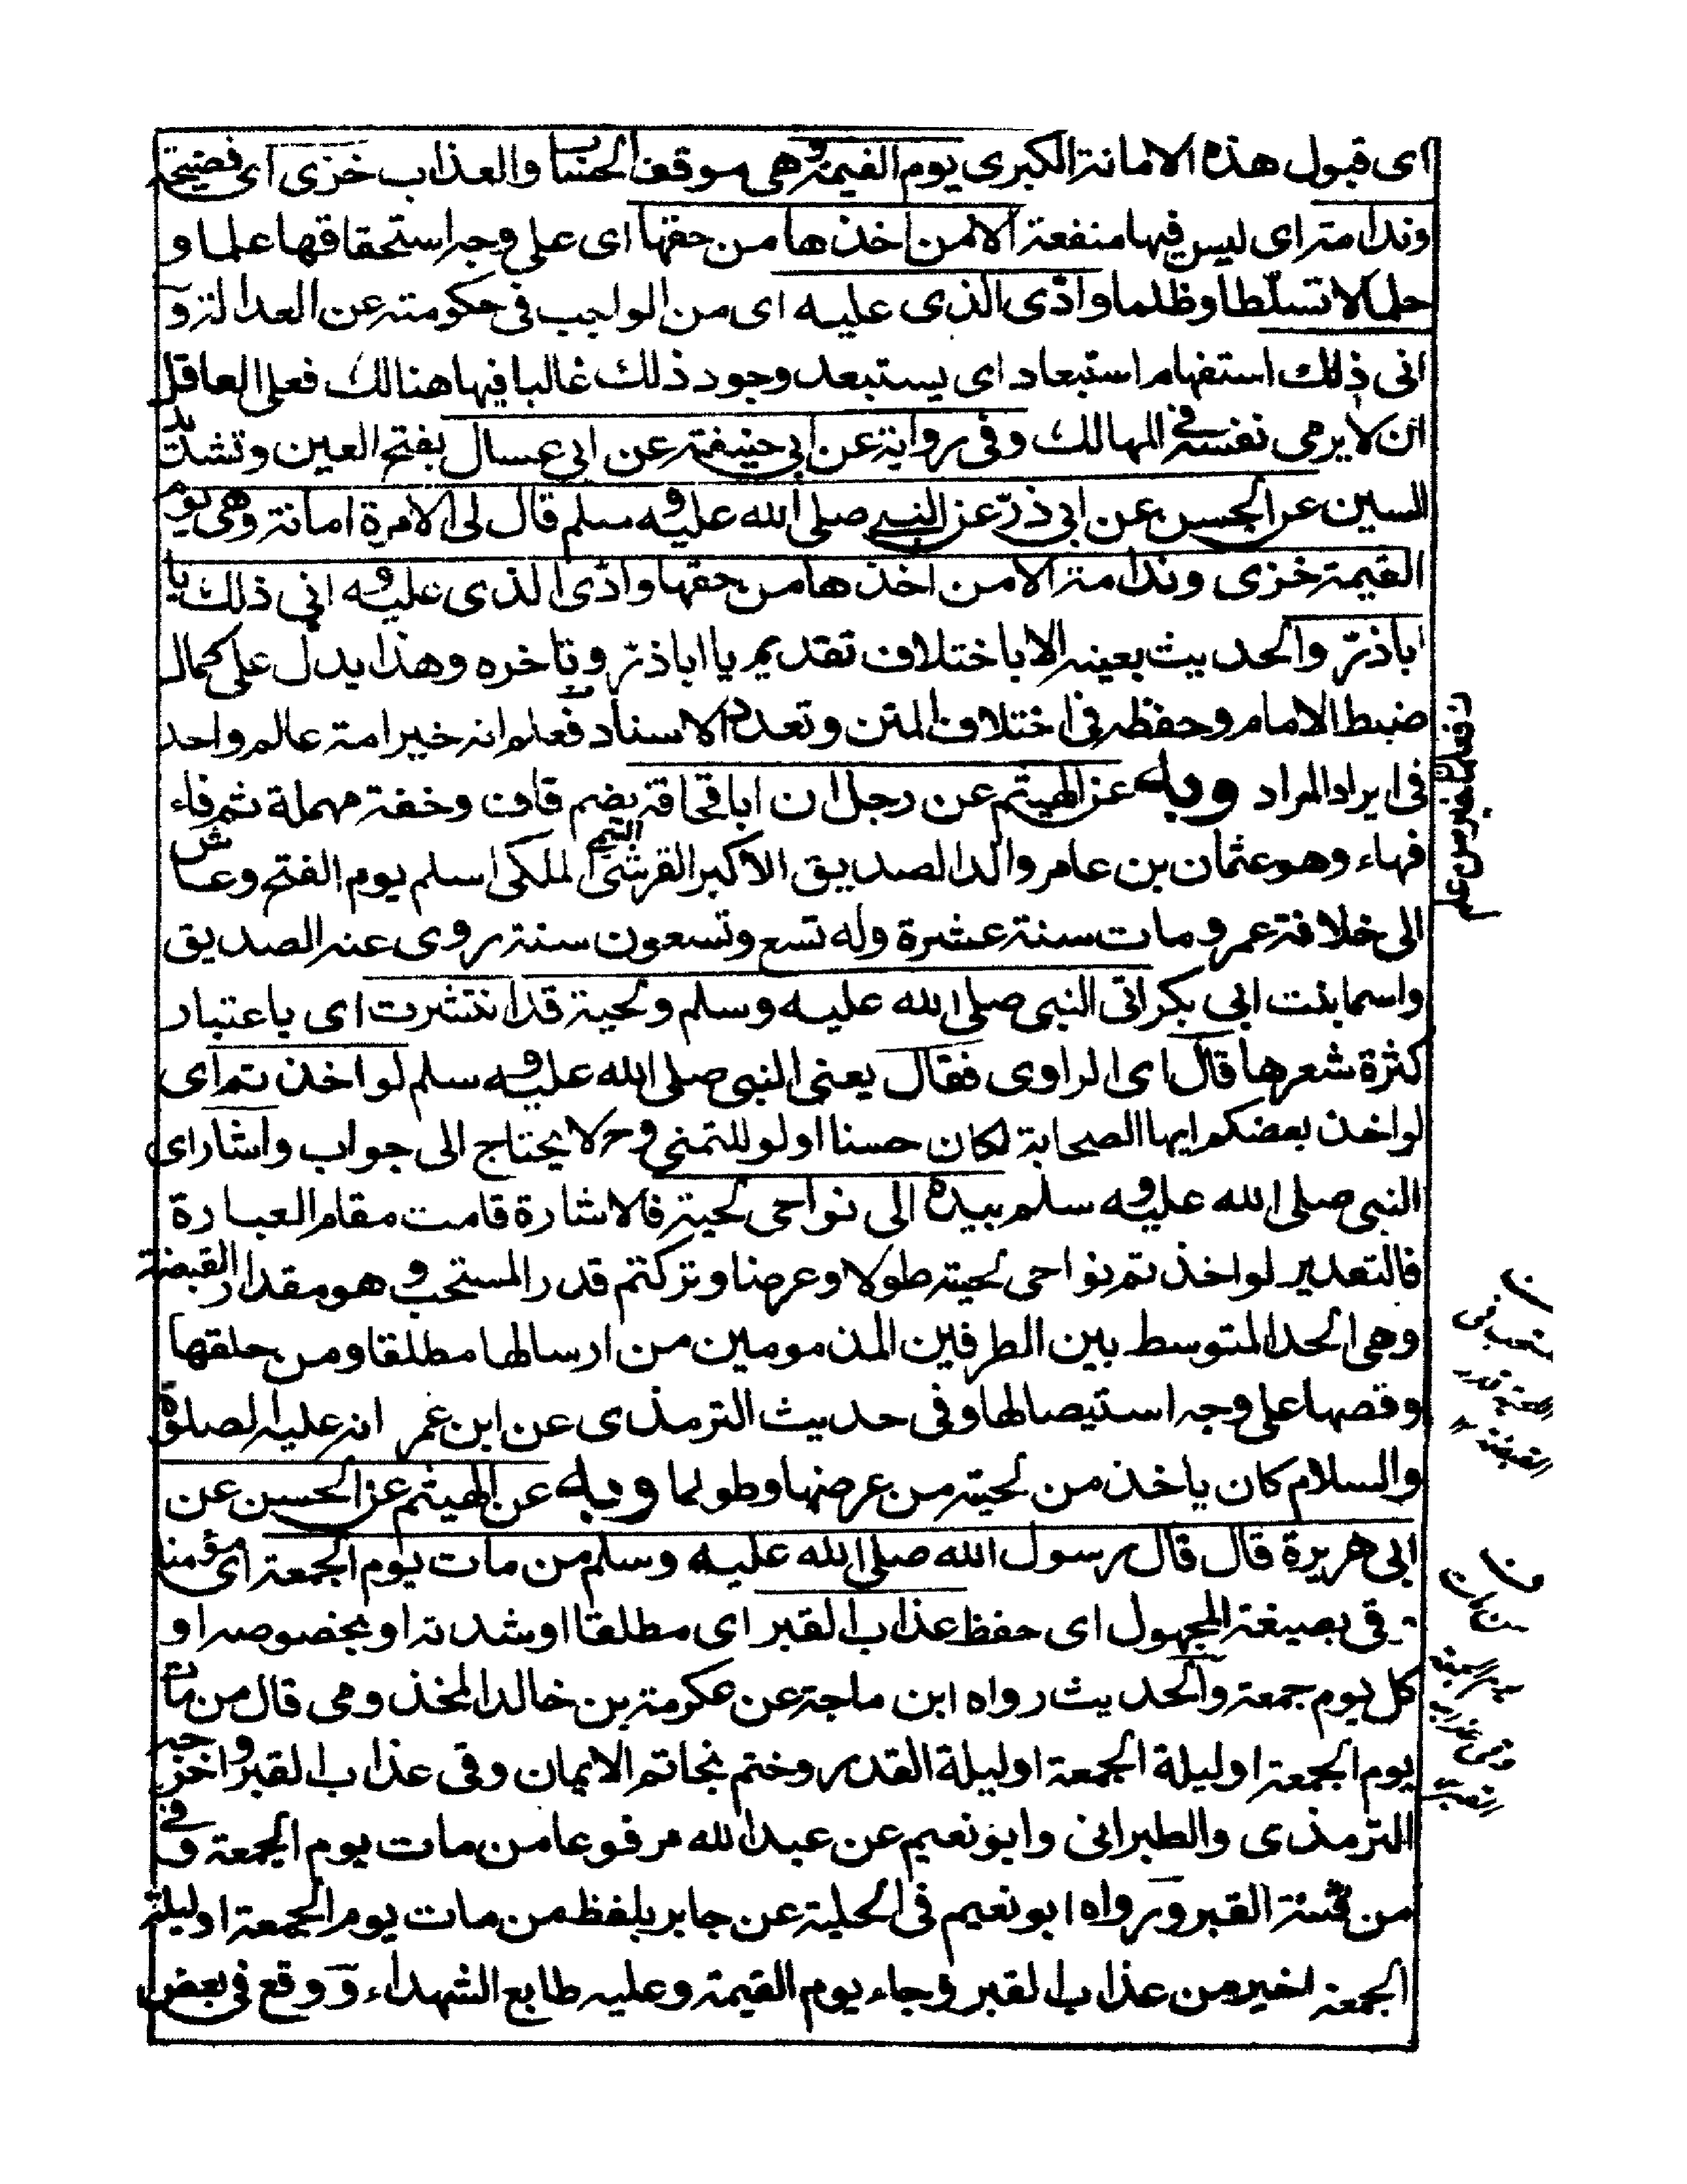 اى قبول هذه الامانة الكبرى يوم القيمة وهى موقف الحساب والعذاب خزى اى فضيحة
وندامة اى ليس فيها منفعة الا من اخذها من حقها اى على وجه استحقاقها علما و
حلما لا تسلّطا وظلما وادّى الذى عليه اى من الواجب فى حكومته عن العدالة و
انى ذلك استفهام استبعاد اى يستبعد وجود ذلك غالبا فيها هنالك فعلى العاقل
ان لا يرمى نفسه فى المهالك وفى رواية عن ابى حنيفة عن ابى عسال بفتح العين وتشديد
السين عن الحسن عن ابى ذرّ عن النبى صلى الله عليه وسلم قال لى الامرة امانة وهى يوم
القيمة خزى وندامة الا من اخذها من حقها وادّى الذى عليه وانى ذلك يا
اباذرّ والحديث بعينه الا باختلاف تقديم يا اباذر وتاخره وهذا يدل على كمال
ضبط الامام وحفظه فى اختلاف المتن وتعدد الاسناد فعلم انه خير امة عالم واحد
فى ايراد المراد وبه عن الهيثم عن رجل ان اباقحافة بضم قاف وخفة مهملة ثم فاء
فهاء وهو عثمان بن عامر والد الصديق الاكبر القرشى التيمى المكى اسلم يوم الفتح وعاش
الى خلافة عمر ومات سنة عشرة وله تسع وتسعون سنة روى عنه الصديق
واسما بنت ابى بكر اتى النبى صلى الله عليه وسلم ولحيته قد انتشرت اى باعتبار
كثرة شعرها قال اى الراوى فقال يعنى النبى صلى الله عليه وسلم لو اخذتم اى
لو اخذ بعضكم ايها الصحابة لكان حسنا او لو للتمنى وح لا يحتاج الى جواب واشار اى
النبى صلى الله عليه وسلم بيده الى نواحى لحيته فالاشارة قامت مقام العبارة
فالتقدير لو اخذتم نواحى لحيته طولا وعرضا وتركتم قدر المستحب وهو مقدار القبضة
وهى الحد المتوسط بين الطرفين المذمومين من ارسالها مطلقا ومن حلقها
وقصها على وجه استيصالها وفى حديث الترمذى عن ابن عمر انه عليه الصلوة
والسلام كان ياخذ من لحيته من عرضها وطولها وبه عن الهيثم عن الحسن عن
ابى هريرة قال قال رسول الله صلى الله عليه وسلم من مات يوم الجمعة اى مؤمنا
وقى بصيغة المجهول اى حفظ عذاب القبر اى مطلقا او شدته او بخصوصه او
كل يوم جمعة والحديث رواه ابن ماجة عن عكرمة بن خالد المخذومى قال من مات
يوم الجمعة او ليلة الجمعة او ليلة القدر وختم بخاتم الايمان وقى عذاب القبر واخرجه
الترمذى والطبرانى وابو نعيم عن عبد الله مرفوعا من مات يوم الجمعة وقى
من فتنة القبر ورواه ابو نعيم فى الحلية عن جابر بلفظ من مات يوم الجمعة او ليلة
الجمعة اخير من عذاب القبر وجاء يوم القيمة وعليه طابع الشهداء و وقع فى بعض